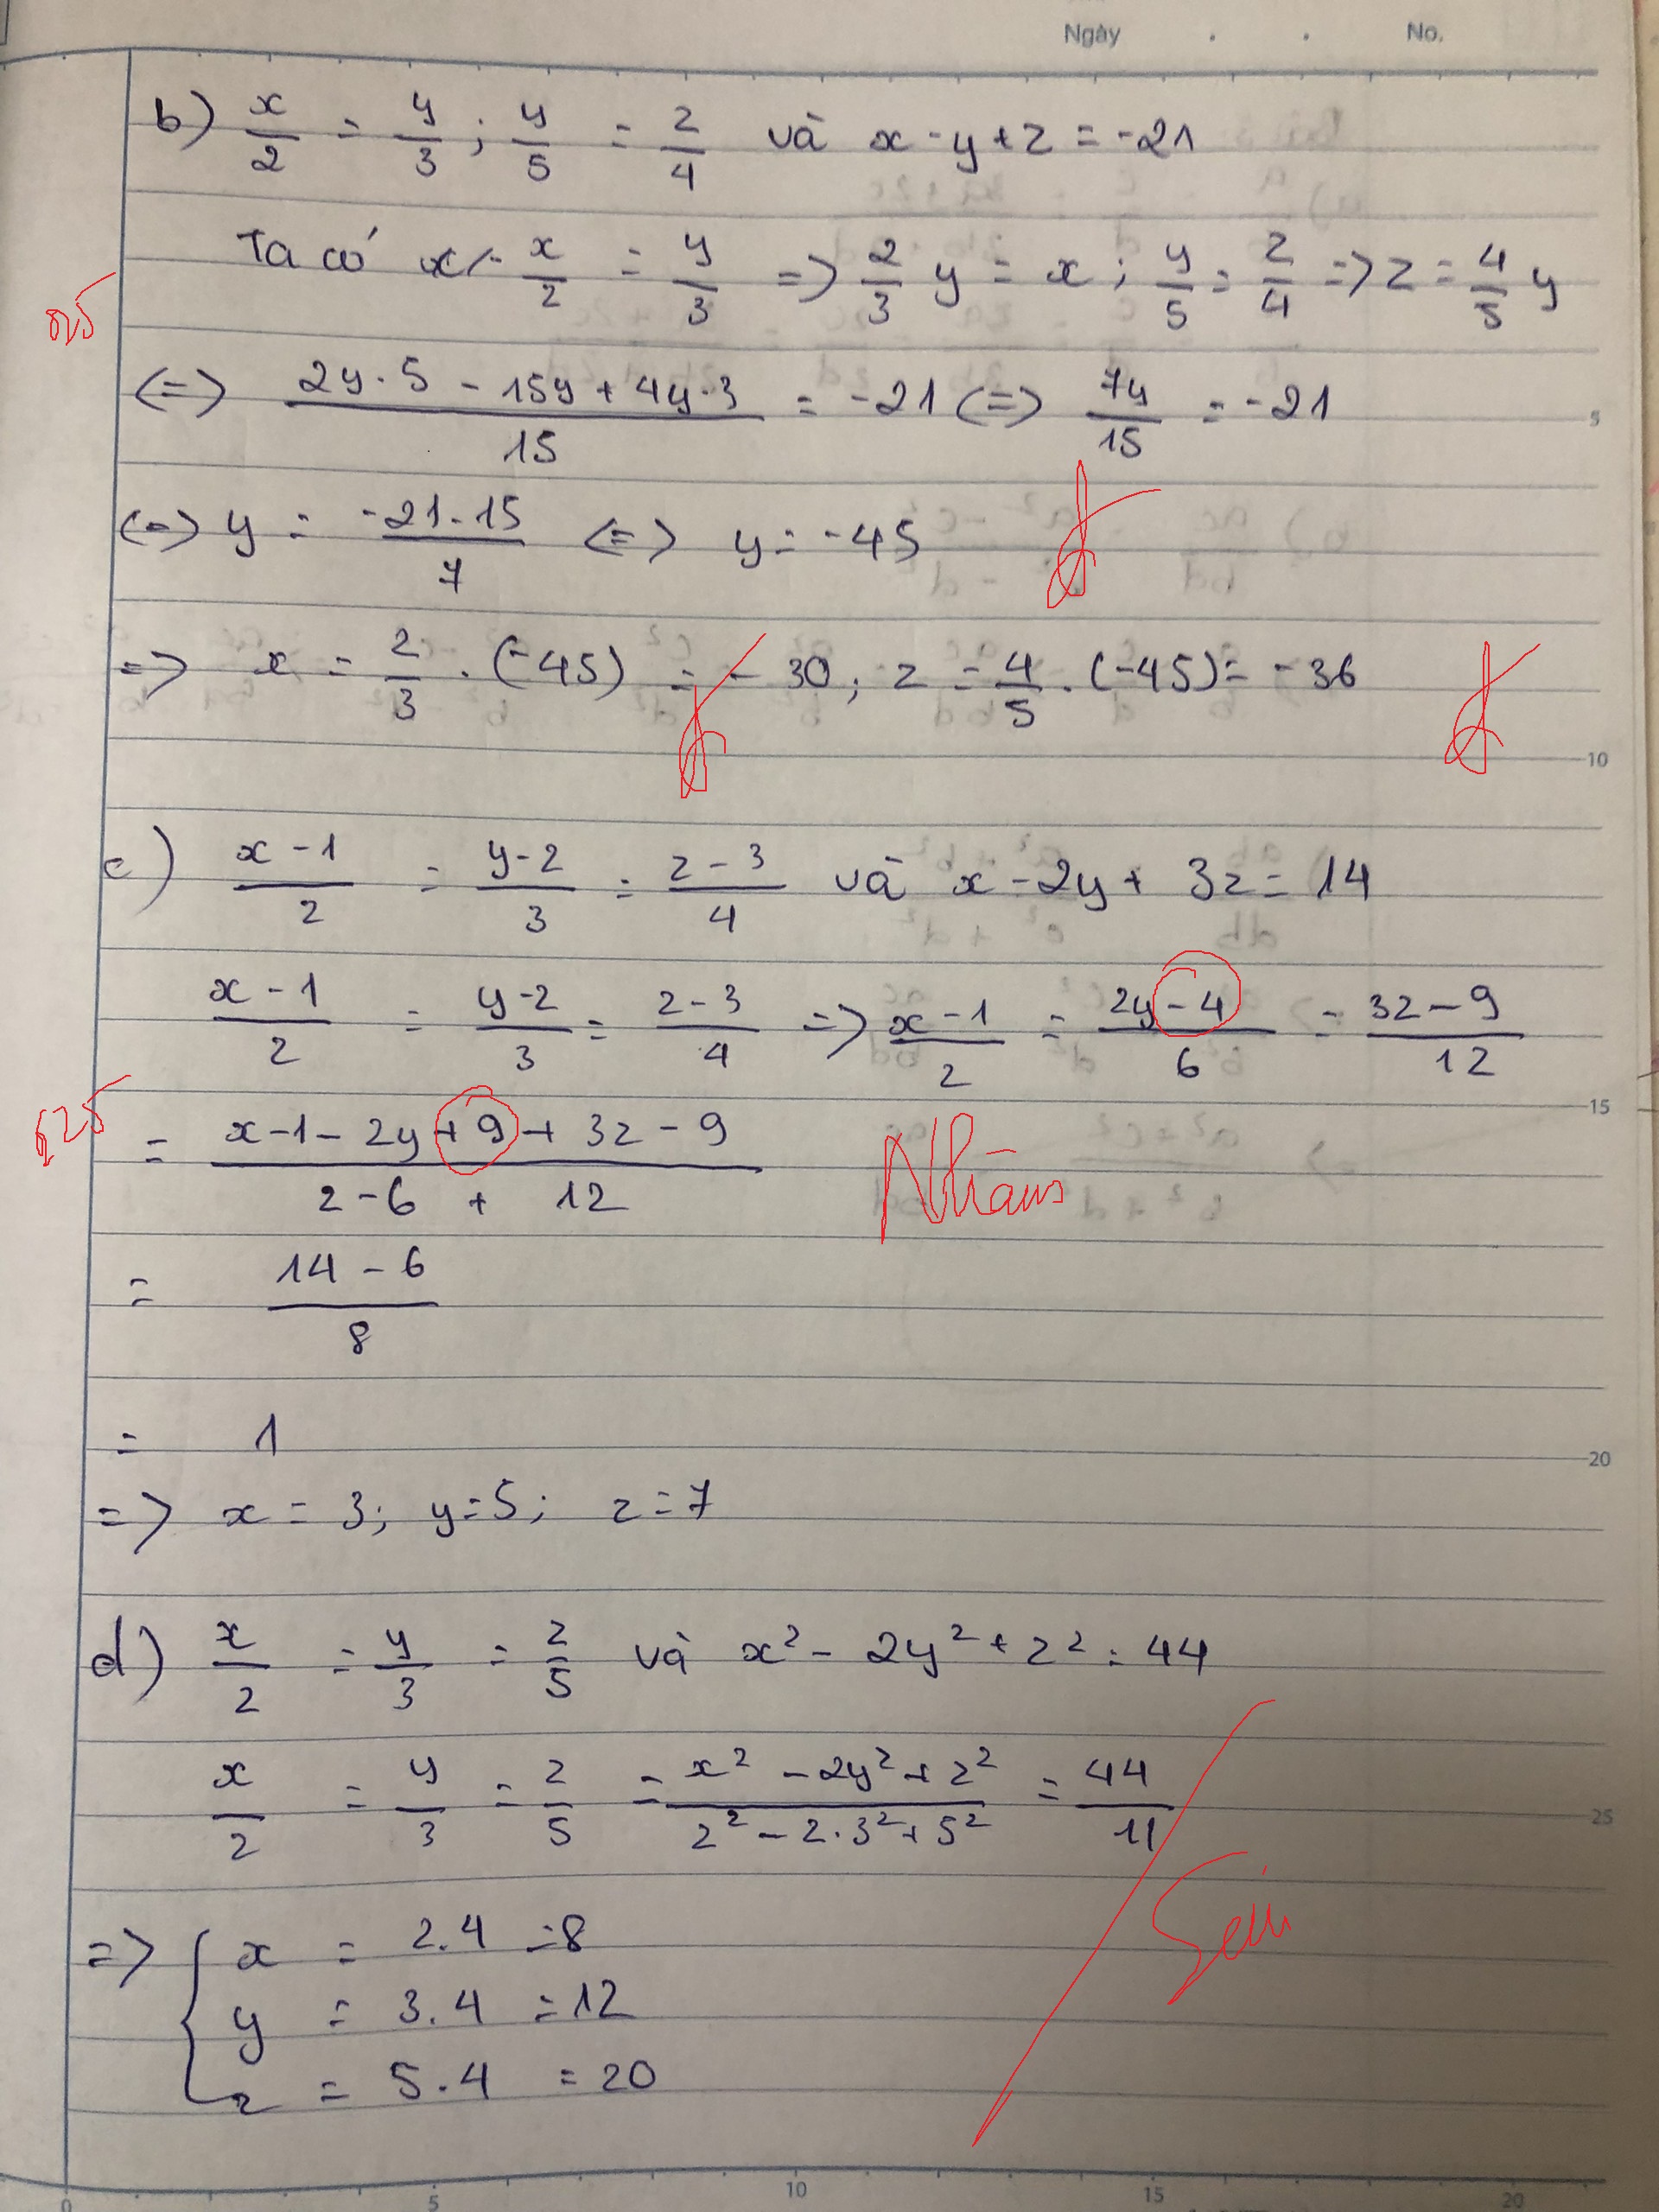 Ngày . . No.
b) x/2 = y/3 ; y/5 = z/4 và x - y + z = -21
Ta có x/2 = y/3 => 2/3 y = x ; y/5 = z/4 => z = 4/5 y
025
<=> (2y . 5 - 15y + 4y . 3)/15 = -21 <=> 7y/15 = -21
5
<=> y = (-21 . 15)/7 <=> y = -45
=> x = 2/3 . (-45) = -30 ; z = 4/5 . (-45) = -36
10
c) (x - 1)/2 = (y - 2)/3 = (z - 3)/4 và x - 2y + 3z = 14
(x - 1)/2 = (y - 2)/3 = (z - 3)/4 => (x - 1)/2 = (2y - 4)/6 = (3z - 9)/12
15
025
= (x - 1 - 2y + 9 + 3z - 9)/(2 - 6 + 12)
Nhầm
= (14 - 6)/8
= 1
20
=> x = 3; y = 5; z = 7
d) x/2 = y/3 = z/5 và x² - 2y² + z² = 44
x/2 = y/3 = z/5 = (x² - 2y² + z²)/(2² - 2.3² + 5²) = 44/11
25
Sai
=> { x = 2.4 = 8
y = 3.4 = 12
z = 5.4 = 20
0 5 10 15 20